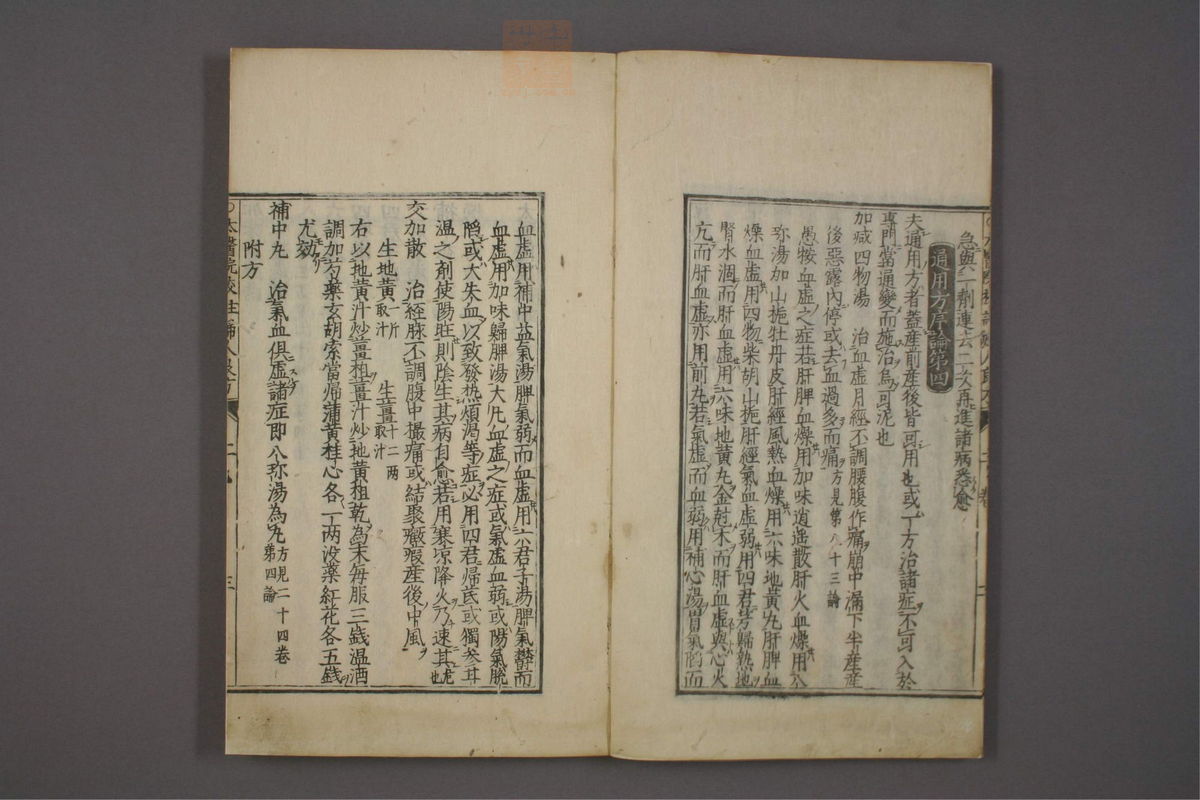 急與一劑連去二次再進諸病悉愈
通用方序論第四
夫通用方者蓋產前產後皆可用也或一方治諸症不可入於
專門當通變而施治烏可泥也
加减四物湯 治血虛月經不調腰腹作痛崩中漏下半產產
後惡露內停或去血過多而痛方見第八十三論
愚按血虛之症若肝脾血燥用加味逍遙散肝火血燥用八
珎湯加山梔牡丹皮肝經風熱血燥用六味地黃丸肝脾血
燥血虛用四物柴胡山梔肝經氣血虛弱用四君芎歸熱地
腎水涸而肝血虛用六味地黃丸金尅木而肝血虛與心火
亢而肝血虛亦用前丸若氣虛而血弱用補心湯胃氣䧟而
血虛用補中益氣湯脾氣弱而血虛用六君子湯脾氣鬱而
血虛用加味歸脾湯大凡血虛之症或氣虛血弱或陽氣脫
䧟或大失血以致發熱煩渴等症必用四君歸芪或獨參甘
溫之劑使陽旺則陰生其病自愈若用寒凉降火乃速其危也
交加散 治經脉不調腹中撮痛或結聚癥瘕產後中風
生地黃一斤取汁 生薑十二兩取汁
右以地黃汁炒薑柤薑汁炒地黃柤乾為末每服三錢温酒
調加芍藥玄胡索當帰蒲黃桂心各一两没藥紅花各五錢
尤効
附方
補中丸 治氣血俱虛諸症即八珎湯為丸方見二十四卷第四論
太醫院校註婦人良方 二 三